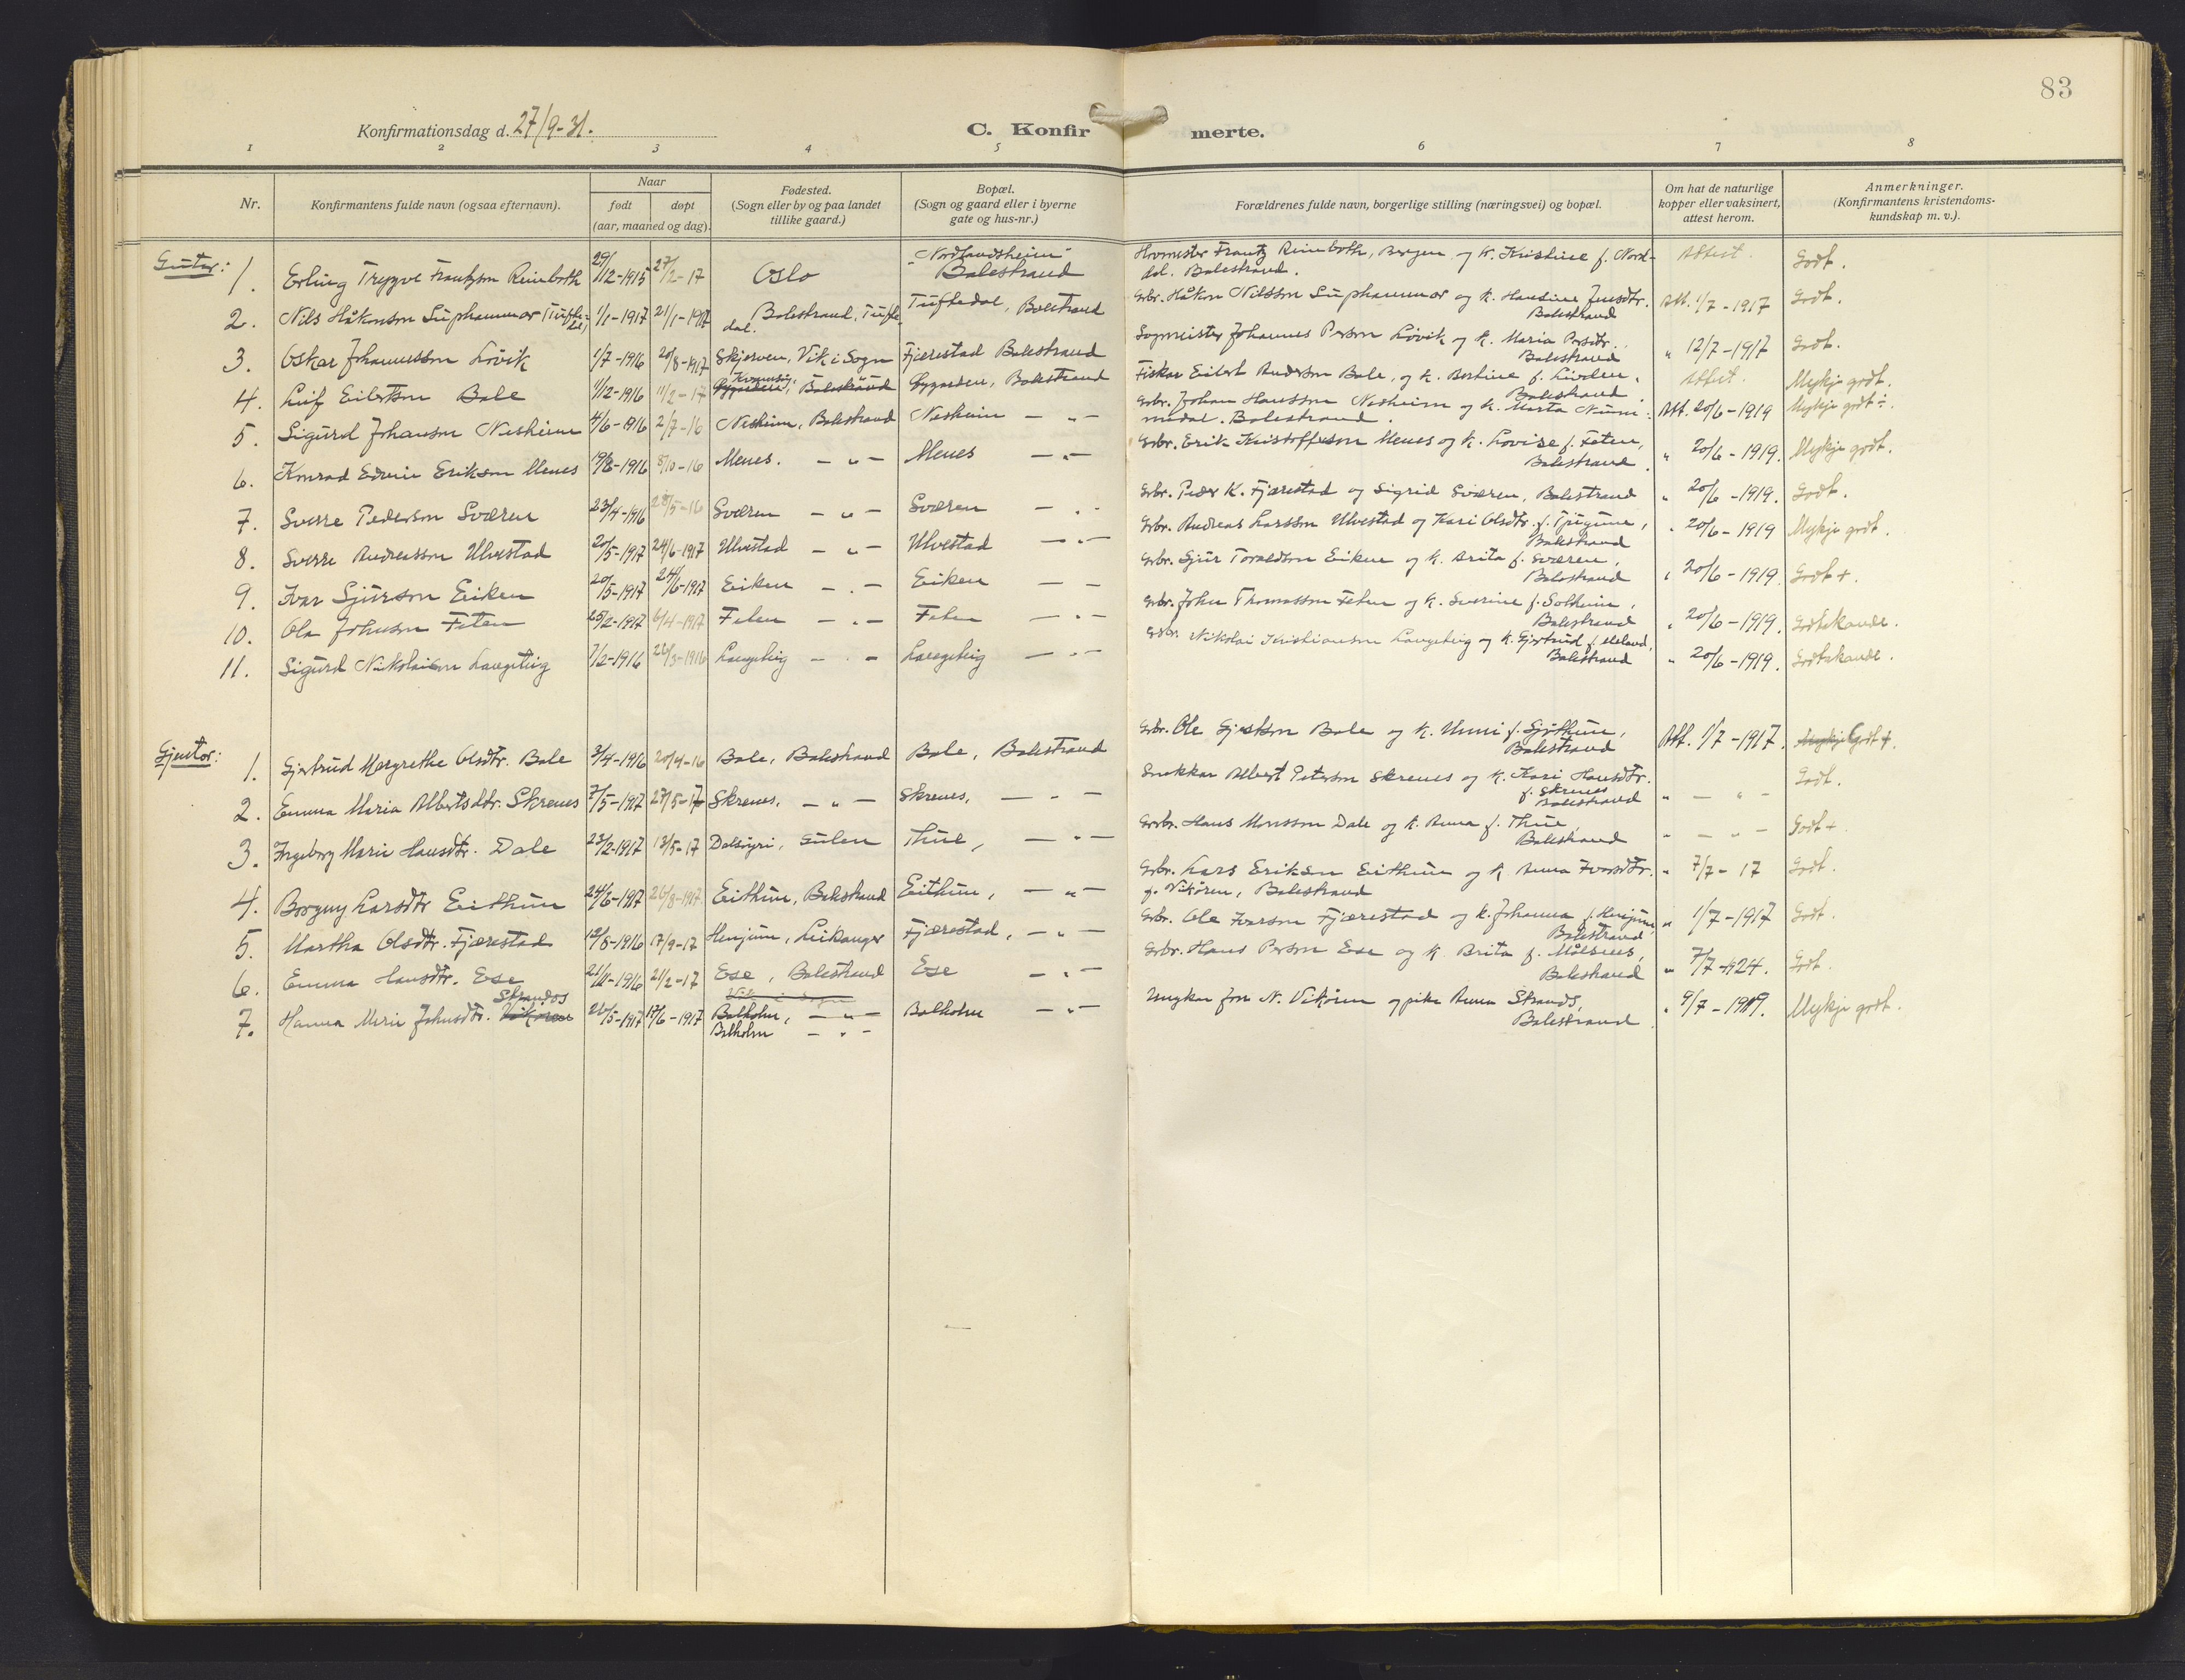 83
Konfirmationsdag d. 27/9-31.
C. Konfirmerte.
1 2 3 4 5 6 7 8
Nr.
Konfirmantens fulde navn (ogsaa efternavn).
Naar
født døpt
(aar, maaned og dag).
Fødested.
(Sogn eller by og paa landet
tillike gaard.)
Bopæl.
(Sogn og gaard eller i byerne
gate og hus-nr.)
Forældrenes fulde navn, borgerlige stilling (næringsvei) og bopæl.
Om hat de naturlige
kopper eller vaksinert,
attest herom.
Anmerkninger.
(Konfirmantens kristendoms-
kundskap m. v.).
Gutar:
1. Erling Trygve Frantzson Reimboth 29/12-1915 27/2-17 Oslo "Nordlandsheim" Balestrand Hovmester Frantz Reimboth, Bergen og k. Kristine f. Nord-
dal. Balestrand. Attest. Godt.
2. Nils Håkonson Suphammar Tuftedal, 1/1-1917 21/1-1917 Balestrand, Tufte-
dal. Tuftedal, Balestrand Grbr. Håkon Nilsson Suphammar og k. Hansine Jensdtr.
Balestrand Att. 1/7-1917 Godt.
3. Oskar Johannesson Lövik 1/7-1916 20/8-1917 Skjørven, Vik i Sogn Fjærestad Balestrand Sogmeister Johannes Person Lövik og k. Maria Persdtr.
Balestrand " 12/7-1917 Godt.
4. Leif Eilertson Bale 1/12-1916 11/2-17 Balestrand Balestrand Fiskar Eilert Anderson Bale, og k. Bertine f.
Balestrand. Attest. Mykje godt.
5. Sigurd Johanson Nesheim 4/6-1916 2/7-16 Nesheim, Balestrand Nesheim — " — Grbr. Johan Hansson Nesheim og k. Marta Num-
medal. Balestrand. Att. 20/6-1919 Mykje godt ÷.
6. Konrad Edvin Erikson Menes 19/8-1916 8/10-16 Menes. — " — Menes — " — Grbr. Erik Kristofferson Menes og k. Lovise f. Feten,
Balestrand. " 20/6-1919. Mykje godt.
7. Sverre Pederson Sværen 23/4-1916 28/5-16 Sværen — " — Sværen — " — Grbr. Peder K. Fjærestad og Sigrid Sværen, Balestrand " 20/6-1919. Godt.
8. Sverre Andreasson Ulvestad 20/5-1917 24/6-1917 Ulvestad — " — Ulvestad — " — Grbr. Andreas Larsson Ulvestad og Kari Olsdtr. f. Tjugum,
Balestrand " 20/6-1919 Mykje godt.
9. Ivar Sjurson Eiken 20/5-1917 24/6-1917 Eiken — " — Eiken — — Grbr. Sjur Torvaldson Eiken og k. Brita f. Sværen,
Balestrand " 20/6-1919. Godt +.
10. Ola Johnson Feten 25/2-1917 6/4-1917 Feten — " — Feten — " — Grbr. John Thomasson Feten og k. Severine f. Solheim,
Balestrand " 20/6-1919. Godtakande.
11. Sigurd Nikolaison Langeteig 7/2-1916 26/3-1916 Langeteig — " — Langeteig — " — Grbr. Nikolai Kristianson Langeteig og k. Gjertrud f.
Balestrand " 20/6-1919. Godtakande.
Gjentor:
1. Gjertrud Margrethe Olsdtr. Bale 3/4-1916 20/4-16 Bale, Balestrand Bale, Balestrand Grbr. Ole Gjertson Bale og k. Unni f.
Balestrand Att. 1/7-1917. Mykje Godt +.
2. Emma Maria Albertsdtr. Skrenes 7/5-1917 27/5-17 Skrenes, — " — Skrenes, — " — Snekkar Albert Peterson Skrenes og k. Kari Hansdtr.
f. Skrenes
Balestrand " — " — Godt.
3. Ingeborg Marie Hansdtr. Dale 23/2-1917 13/5-17 Dalsøyri, Gulen Thue, — " — Grbr. Hans Monsson Dale og k. Anna f. Thue,
Balestrand " — " — Godt +
4. Borgny Larsdtr Eithun 24/6-1917 26/8-1917 Eithun, Balestrand Eithun, — " — Grbr. Lars Erikson Eithun og k Anna Ivarsdtr.
f. Vikøren, Balestrand " 7/7-17 Godt.
5. Martha Olsdtr. Fjærestad 12/8-1916 17/9-17 Henjum, Leikanger Fjærestad, — " — Grbr. Ole Ivarson Fjærestad og k. Johanna f. Henjum,
Balestrand " 1/7-1917 Godt.
6. Emma Hansdtr. Ese 21/11-1916 21/2-17 Ese, Balestrand Ese — " — Grbr. Hans Person Ese og k. Brita f. Målsnes,
Balestrand " 7/7-24. Godt.
7. Hanna Marie Johnsdtr. Vikøren Strands 26/5-1917 17/6-1917 Vik i Sogn
Balholm, — " —
Balholm — " — Balholm — " — Ungkar Jon N. Vikøren og pike Anna Strands,
Balestrand. " 9/7-1919. Mykje godt.